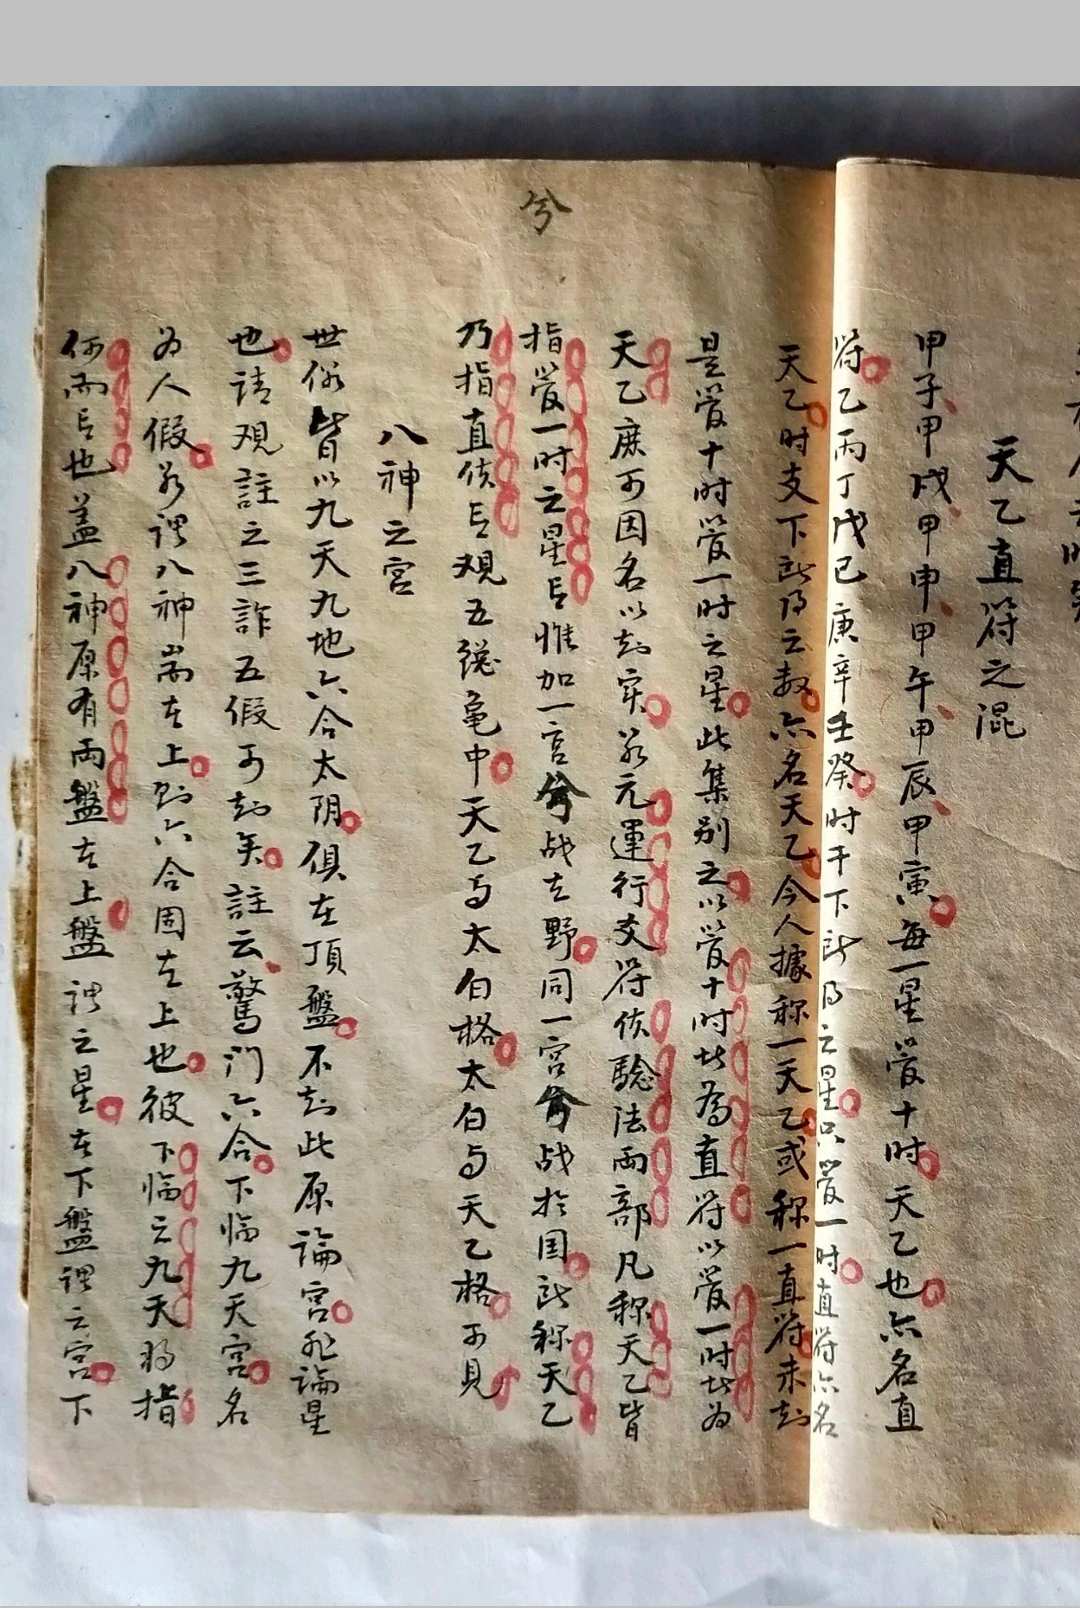 天乙直符之混
甲子甲戌甲申甲午甲辰甲寅每一星管十时天乙也亦名直
符乙丙丁戊己庚辛壬癸时干下所得之星只管一时直符亦名
天乙时支下所得之数亦名天乙今人據称一天乙或称一直符未知
是管十时管一时之星此集别之以管十时皆為直符以管一时皆为
天乙庶可因名以知实若元運行交符使驗法两部凡称天乙皆
指管一时之星言惟加一宫兮战在野同一宫兮战於国所称天乙
乃指直使言观五總龟中天乙与太白格太白与天乙格可見
兮
八神之宮
世俗皆以九天九地六合太阴俱在頂盤不知此原論宫非論星
也请观註之三詐五假可知矣註云驚门六合下临九天宫名
为人假若谓八神耑在上则六合固在上也彼下临之九天将指
何而言也盖八神原有两盤在上盤谓之星在下盤谓之宫下